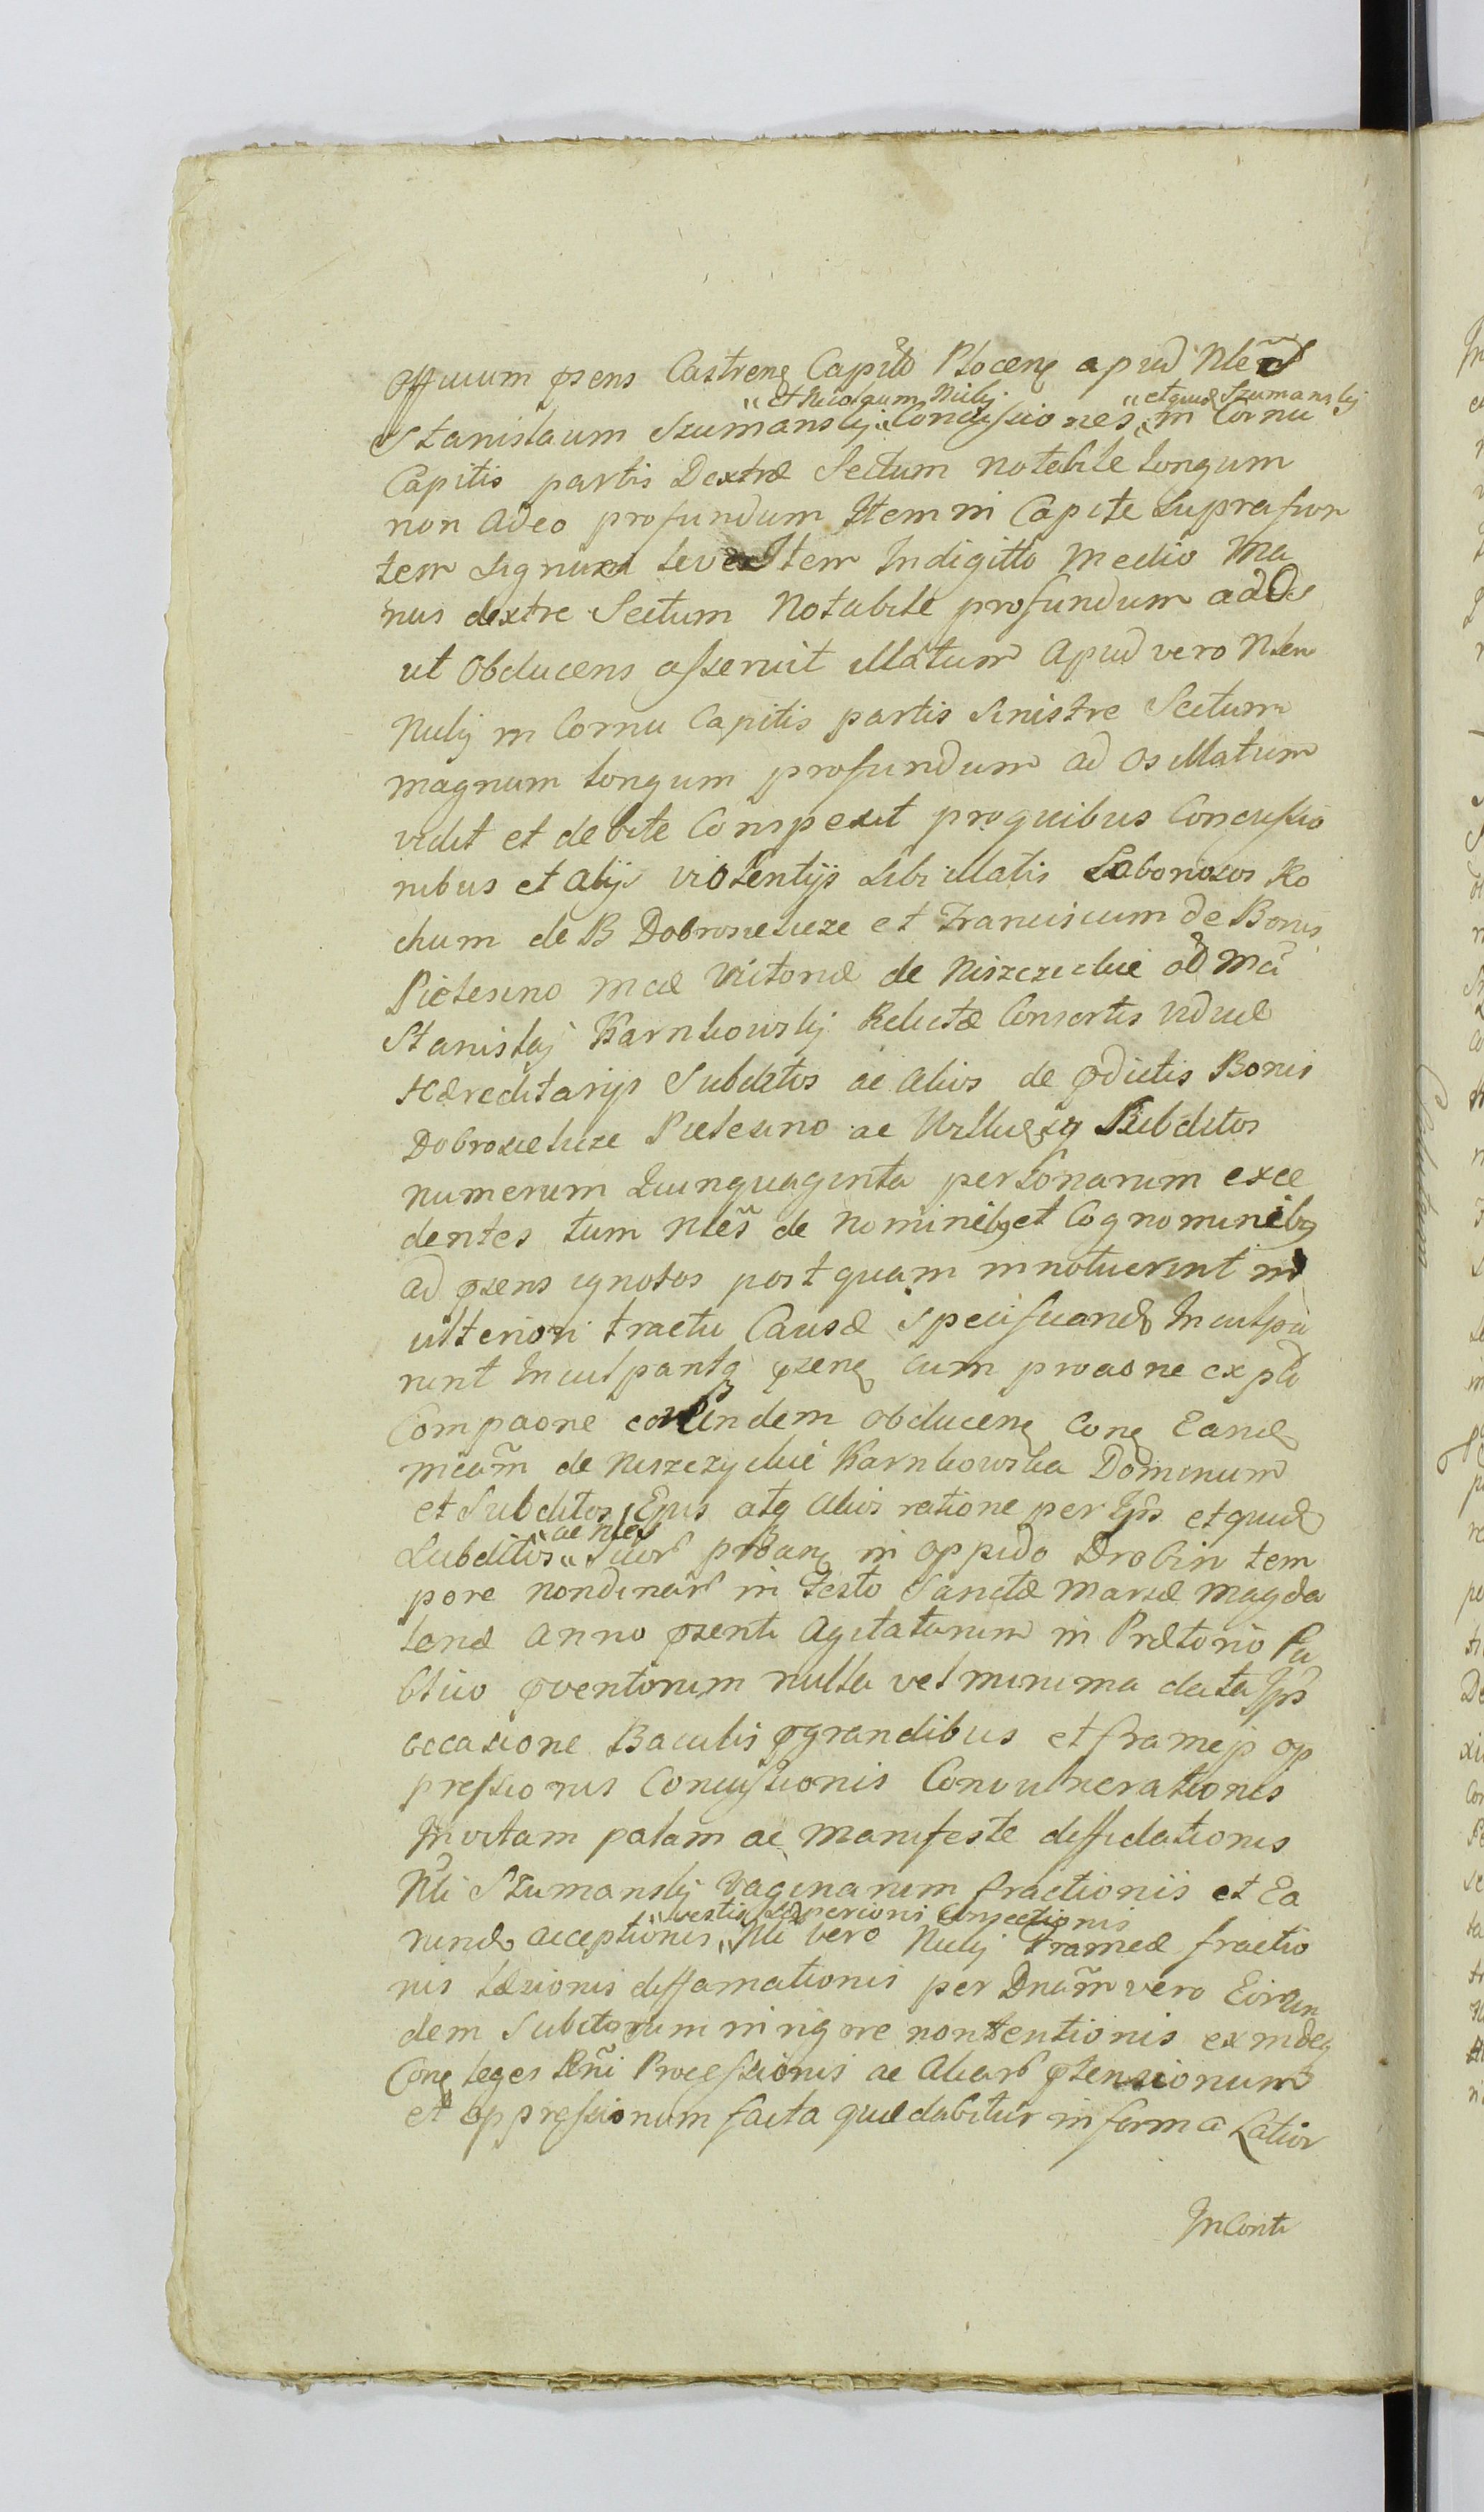 Officium psens Castrens Capitlo Plocens apud Nles
"et Nicolaum Nulij "et quid Szumanskij
Stanislaum Szumanskij "Concussiones "in Cornu
Capitis partis Dextræ Sectum notabile longum
non adeo profundum Item in Capite supra fron
tem signum leve Item In digitto medio Ma
nus dextre Sectum Notabile profundum ad Os
ut Obducens asseruit illatum Apud vero Nlem
Nulij in Cornu Capitis partis sinistre Sectum
magnum longum profundum ad os illatum
vidit et debite Conspexit pro quibus Concussio
nibus et alijs violentijs sibi illatis Laboriosos Ro
chum de B Dobrosielice et Franciscum de Bonis
Pielesino Mcæ Victoriæ de Niszczickie od Mci
Stanislaj Karnkowskij Relictæ Consortis viduæ
Hæreditarijs Subditos ac alios de pdictis Bonis
Dobrosielice Pielesino ac Subditos
numerum Quinquaginta personarum exce
dentes tum Nles de Nominibq et Cognominibq
ad psens ignotos postquam innotuerint in
ulteriori tractu Causæ specificand Inculpa
runt Inculpantq psens cum proaone ex pte
Compaone eorundem obducens Cons Eand
Mcam de Niszczyckie Karnkowska Dominum
et Subditos Ejus atq alios ratione per Ips et quid
"ac Nles
Subditos "Suor in oppido Drobin tem
pore nondinar in Festo Sanctæ Mariæ Magda
lenæ Anno psenti Agitatarum in Prætorio Pu
blico pventorum nulla vel minima data Ips
occasione Baculis pgrandibus et frameis op
pressionis Concussionis Convulnerationis
In vitam palam ac manifeste diffidationis
Nli Szumanskij Vaginarum fractionis et Ea
"vestis superioris Consectionis
rund acceptionis "Nli vero Nulij Frameæ fractio
nis læsionis diffamationis per Dnam vero Eorun
dem Subditorum in rigore non tentionis exindeq
Cons leges Rni Processionis ac aliar ptensionum
et oppressionum facta quæ dabitur in forma Latior
In Conti